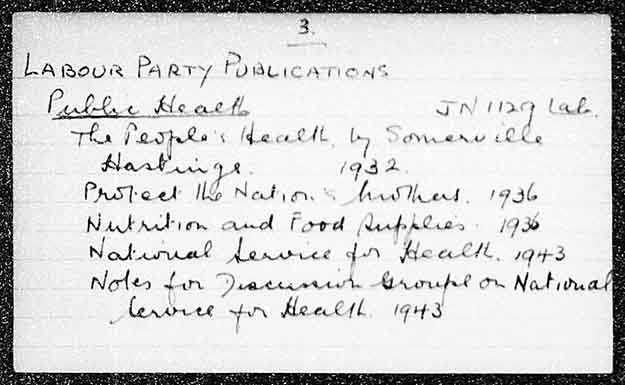 3.
LABOUR PARTY PUBLICATIONS
Public Health JN 1129 Lab.
The People's Health, by Somerville
Hastings. 1932.
Protect the Nation's Mothers. 1936
Nutrition and Food Supplies. 1936
National Service for Health. 1943
Notes for Discussion Groups on National
Service for Health. 1943